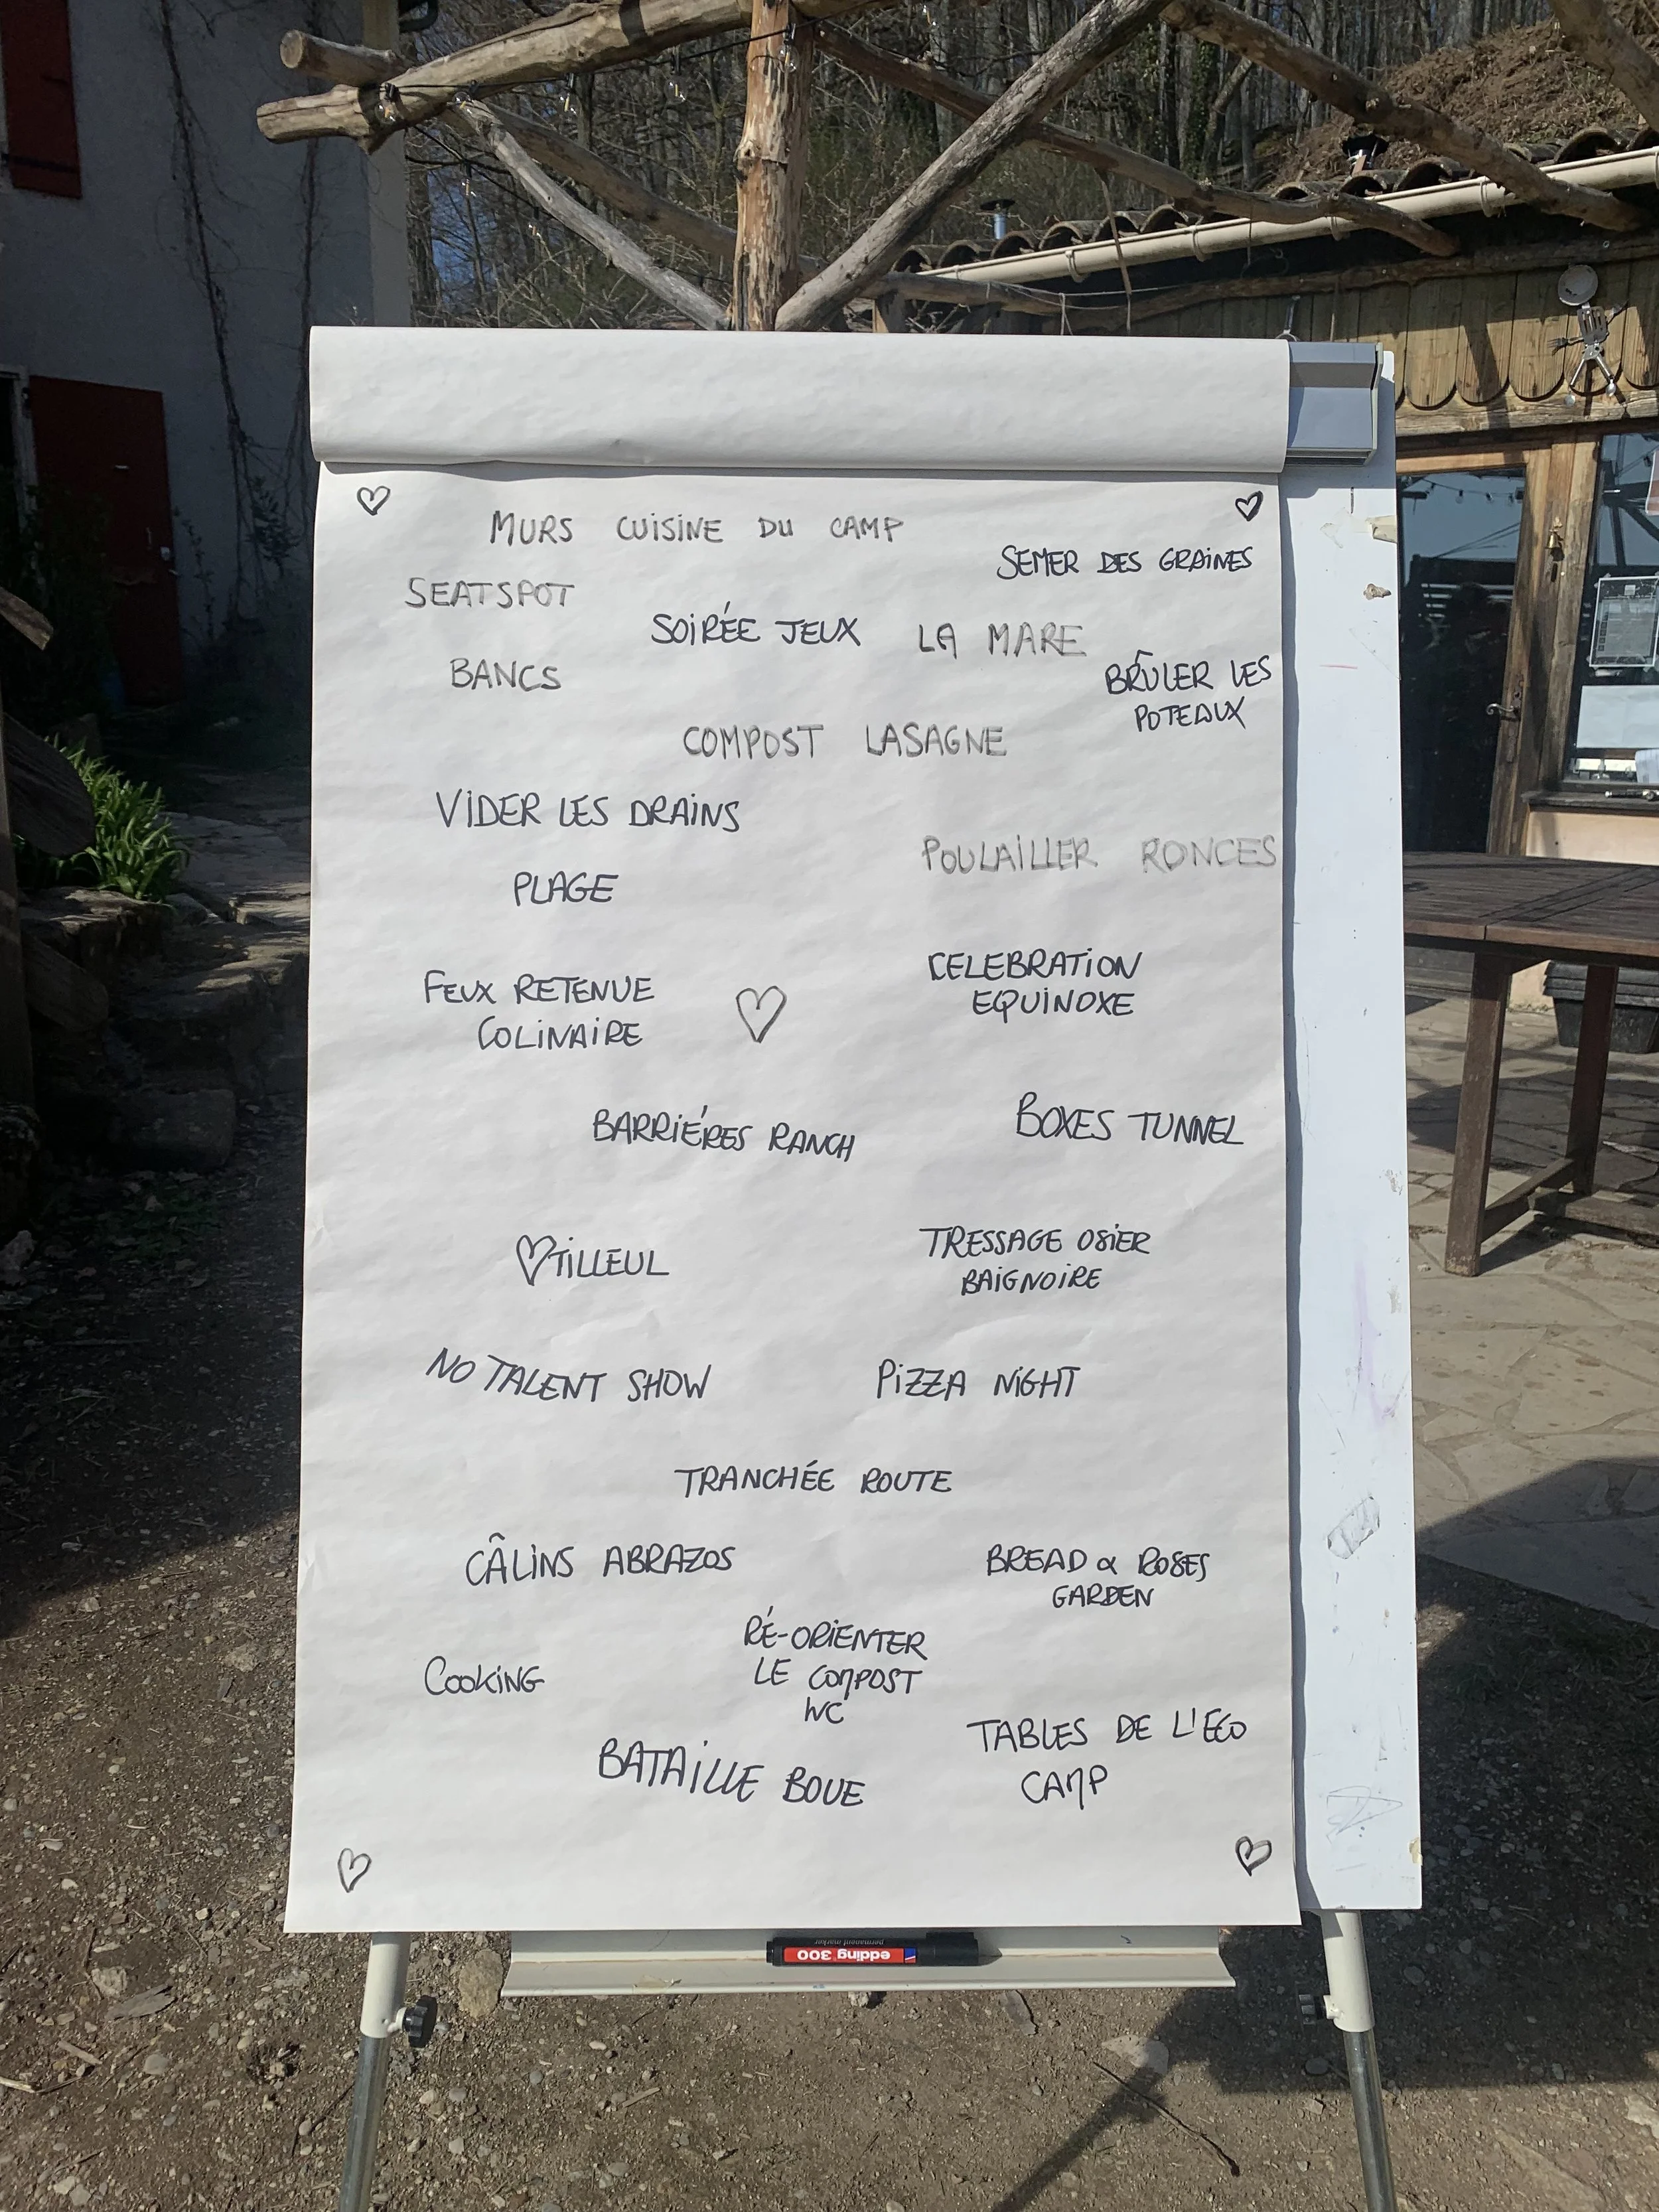 MURS CUISINE DU CAMP
SEMER DES GRAINES
SEATSPOT
SOIRÉE JEUX
LA MARE
BANCS
BRÛLER LES
POTEAUX
COMPOST LASAGNE
VIDER LES DRAINS
POULAILLER RONCES
PLAGE
CELEBRATION
EQUINOXE
FEUX RETENUE
COLINAIRE
BARRIÉRES RANCH
BOXES TUNNEL
♡TILLEUL
TRESSAGE OSIER
BAIGNOIRE
NO TALENT SHOW
PIZZA NIGHT
TRANCHÉE ROUTE
CÂLINS ABRAZOS
BREAD & ROSES
GARDEN
RÉ-ORIENTER
LE COMPOST
WC
COOKING
TABLES DE L'ECO
CAMP
BATAILLE BOUE
edding 300
permanent marker